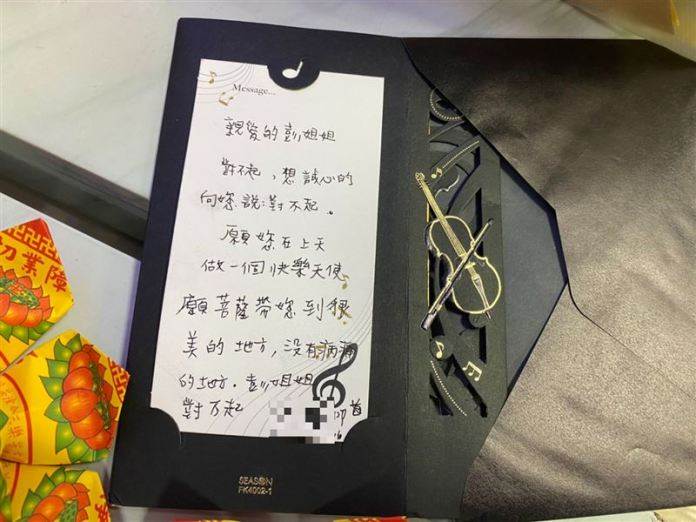 Message...
親愛的彭姐姐
對不起，想誠心的
向妳說：對不起。
願妳在上天
做一個快樂天使
願菩薩帶妳到很
美的地方，沒有病痛
的地方．彭姐姐
對不起
叩首
SEASON
FK4002-1
業障